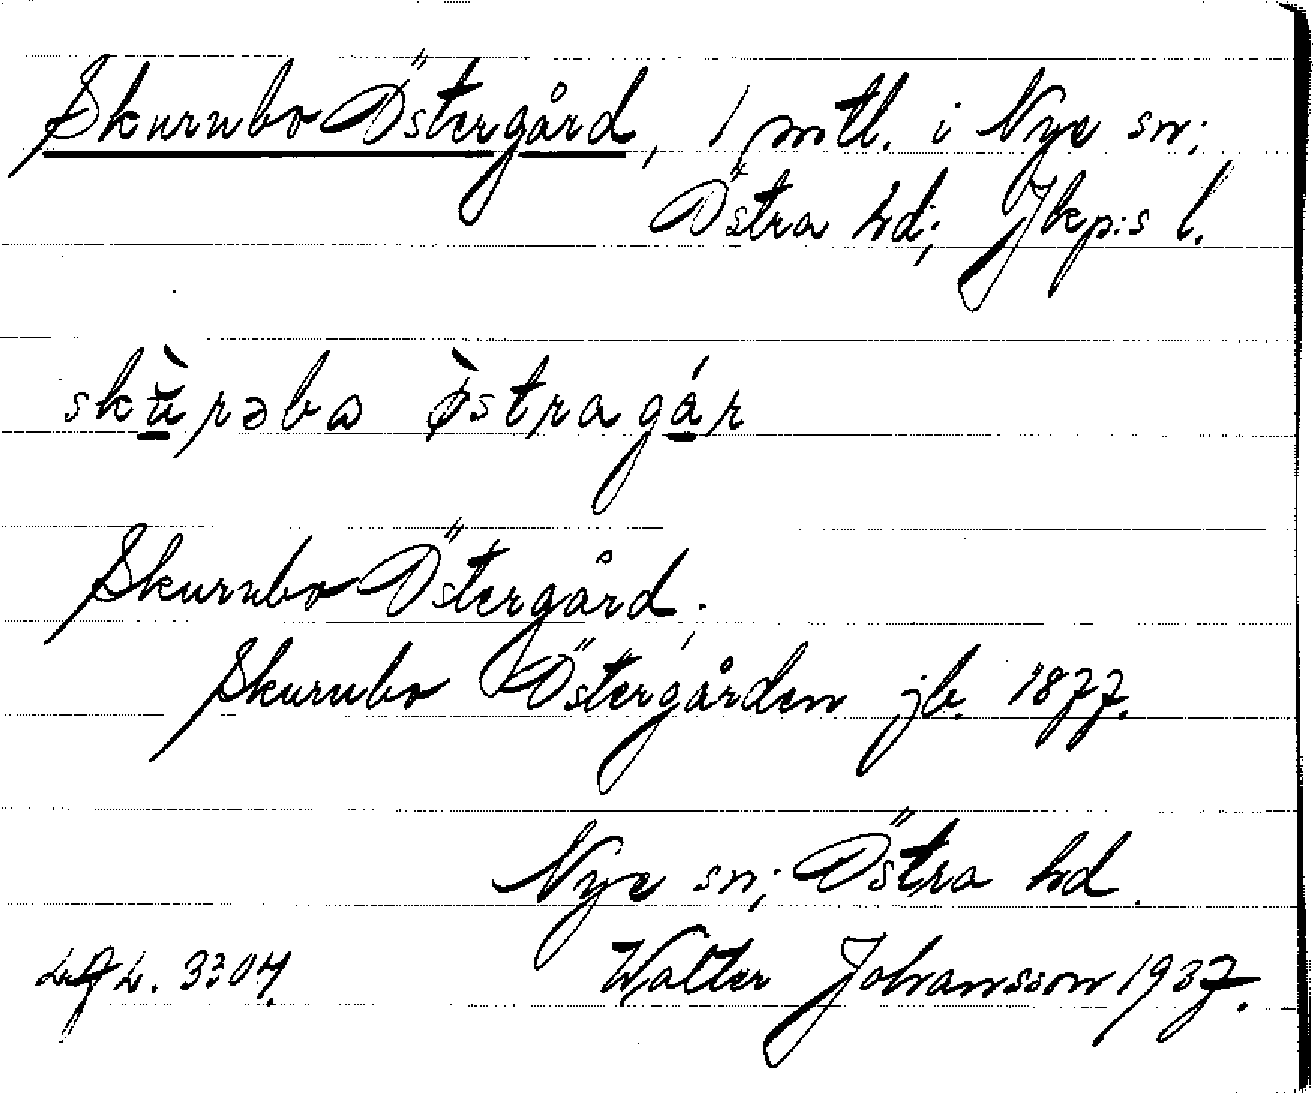 Skurubo Östergård, 1 mtl. i Nye sn;
Östra hd; Jkp:s l.
skùrəbɷ östragár
Skurubo Östergård;
Skurubo Östergården jb. 1877.
Nye sn; Östra hd.
Walter Johansson 1937.